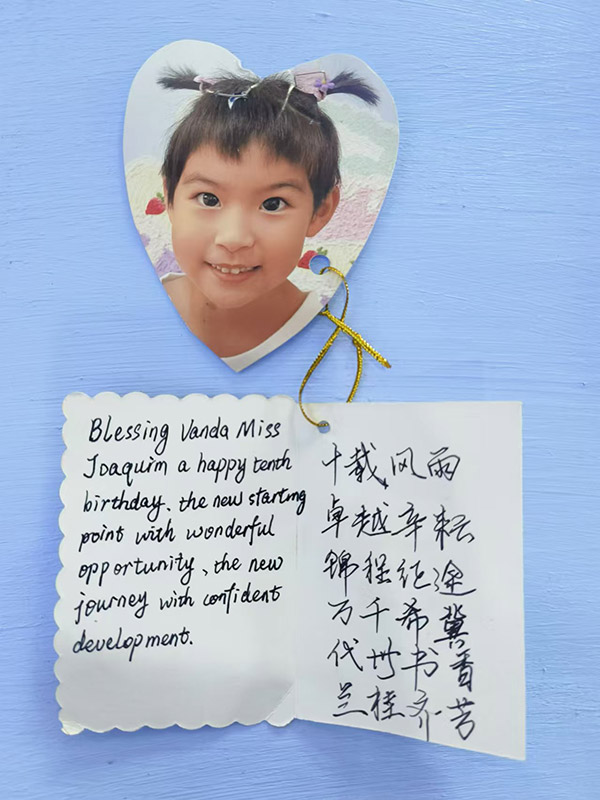 Blessing Vanda Miss
Joaquim a happy tenth
birthday、the new starting
point with wonderful
opportunity、the new
journey with confident
development.
十载风雨
卓越辛耘
锦程征途
万千希冀
代世书香
兰桂齐芳